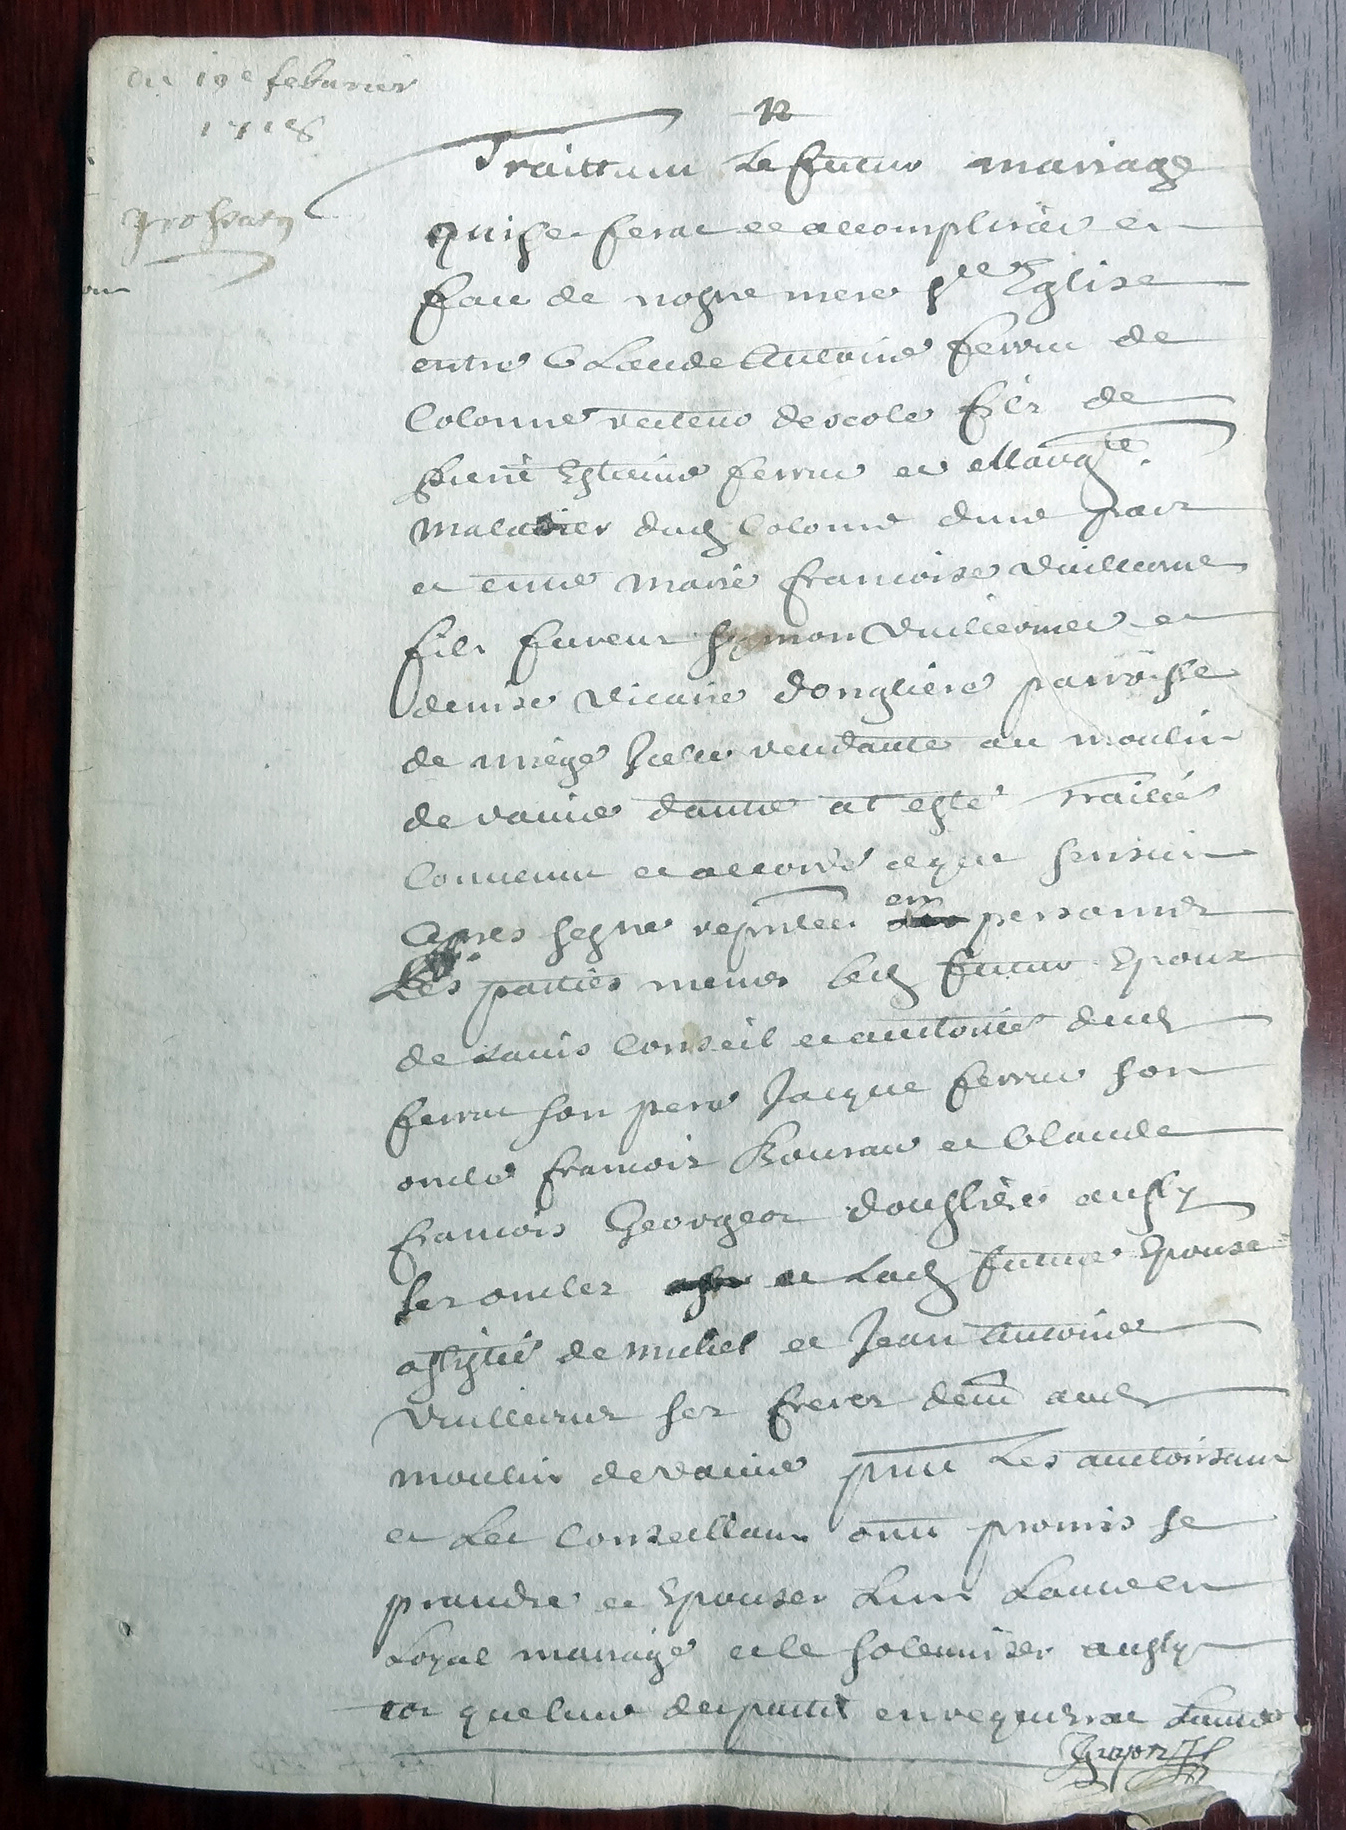 du 19e febvrier
1718
12
Traittant le futur mariage
qui se ferat et accomplirat en
face de nostre mere ste Eglise
entre Claude Antoine ferru de
Colonne recteur descole fils de
Pierre Estienne ferru et Margte
Maladier dud Colonne dune part
et enne Marie francoise Vuillerme
fille furent Symon Vuillermet et
denise Vicaire dongliere parroisse
de miege Icelle dante au moulin
de vaine dautre at esté traitté
Convenu et accordé ce que sensuit
Apres sestre representées en personnes
Les parties memes led futur Epoux
de lavis Conseil et auctorité dud
ferru son pere Jacque ferru son
oncle francois et Claude
francois Georgeot donglière aussy
ses oncles et lad future Epouse
assistée de michel et Jean Antoine
Vuillerme ses freres demt aud
moulin de vaine pnt les auctorisant
et les Conseillant ont promis se
prandre et Epouser lun lautre en
Loyal mariage et le solemniser aussy
tot que lune des parties en requerrat lautre